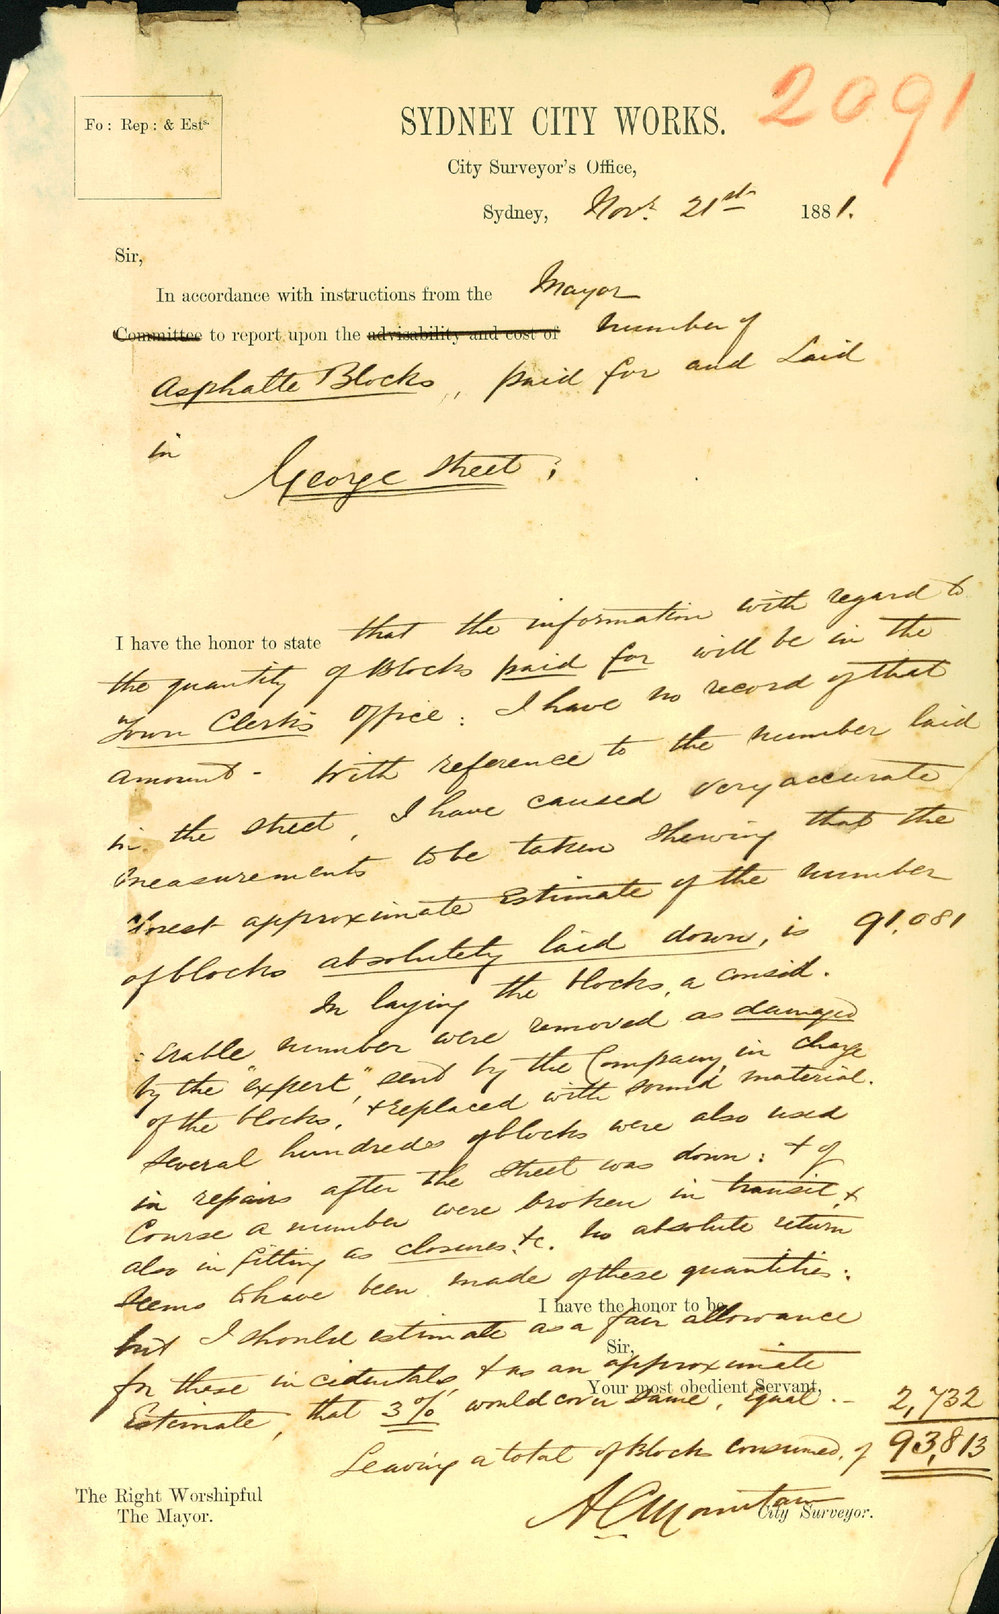 2091
Fo: Rep: & Ests
SYDNEY CITY WORKS.
City Surveyor's Office,
Sydney, Novr. 21st 1881.
Sir,
In accordance with instructions from the Mayor
Committee to report upon the advisability and cost of number of
Asphalte Blocks, paid for and Laid
in George Street;
I have the honor to state that the information with regard to
the quantity of Blocks paid for will be in the
Town Clerk's Office: I have no record of that
amount - With reference to the number laid
in the street, I have caused very accurate
measurements to be taken shewing that the
closest approximate Estimate of the number
of blocks absolutely laid down, is 91,081
In laying the blocks, a consid.
:erable number were removed as damaged
by the "expert," send by the Company, in charge
of the blocks, & replaced with sound material.
Several hundreds of blocks were also used
in repairs after the street was down: & of
Course a number were broken in transit, &
also in fitting as closures, &c. No absolute return
seems to have been made of these quantities:
I have the honor to be,
but I should estimate as a fair allowance
Sir,
for these incidentals, & as an approximate
Your most obedient Servant,
Estimate, that 3% would cover same, equal. - 2,732
Leaving a total of Blocks consumed, of 93,813
The Right Worshipful
The Mayor.
A C Mountain
City Surveyor.